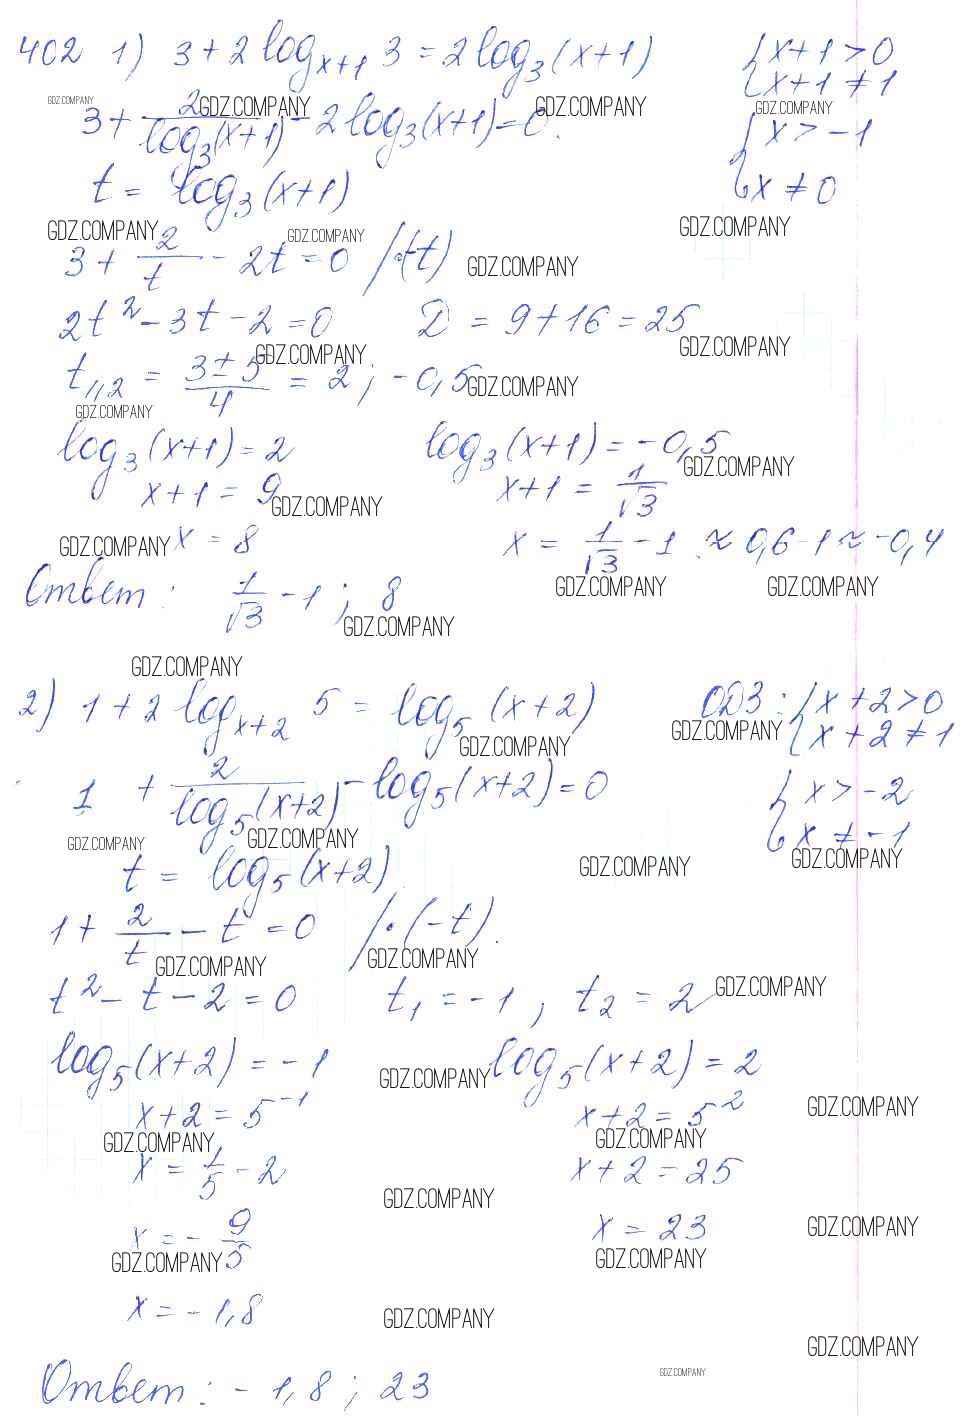 402 1) 3 + 2 log_{x+1} 3 = 2 log_3 (x+1) { x+1 > 0
{ x+1 ≠ 1
GDZ.COMPANY GDZ.COMPANY GDZ.COMPANY GDZ.COMPANY
3 + 2/log_3(x+1) - 2 log_3(x+1) = 0. { x > -1
t = log_3 (x+1) { x ≠ 0
GDZ.COMPANY GDZ.COMPANY GDZ.COMPANY
3 + 2/t - 2t = 0 /·(-t) GDZ.COMPANY
2t^2 - 3t - 2 = 0 D = 9 + 16 = 25
GDZ.COMPANY GDZ.COMPANY
t_{1,2} = (3 ± 5)/4 = 2 ; -0,5 GDZ.COMPANY
GDZ.COMPANY
log_3 (x+1) = 2 log_3 (x+1) = -0,5
GDZ.COMPANY
x+1 = 9 x+1 = 1/√3
GDZ.COMPANY
GDZ.COMPANY x = 8 x = 1/√3 - 1 ≈ 0,6 - 1 ≈ -0,4
GDZ.COMPANY GDZ.COMPANY
Ответ: 1/√3 - 1 ; 8
GDZ.COMPANY
GDZ.COMPANY
2) 1 + 2 log_{x+2} 5 = log_5 (x+2) ОДЗ: { x+2 > 0
{ x+2 ≠ 1
GDZ.COMPANY GDZ.COMPANY
1 + 2/log_5(x+2) - log_5(x+2) = 0 { x > -2
{ x ≠ -1
GDZ.COMPANY GDZ.COMPANY GDZ.COMPANY GDZ.COMPANY
t = log_5 (x+2)
1 + 2/t - t = 0 /·(-t).
GDZ.COMPANY GDZ.COMPANY
t^2 - t - 2 = 0 t_1 = -1 , t_2 = 2 GDZ.COMPANY
log_5 (x+2) = -1 log_5 (x+2) = 2
GDZ.COMPANY
x+2 = 5^{-1} x+2 = 5^2 GDZ.COMPANY
GDZ.COMPANY GDZ.COMPANY
x = 1/5 - 2 x+2 = 25
GDZ.COMPANY
x = - 9/5 x = 23 GDZ.COMPANY
GDZ.COMPANY GDZ.COMPANY
x = -1,8 GDZ.COMPANY
GDZ.COMPANY
GDZ.COMPANY
Ответ: -1,8 ; 23